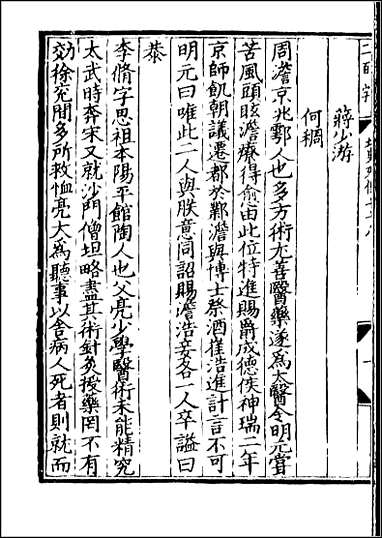 蔣少游
何稠
周澹京兆鄠人也多方術尤善醫藥遂爲太醫令明元嘗
苦風頭眩澹療得愈由此位特進賜爵成德侯神瑞二年
京師飢朝議遷都於鄴澹與博士祭酒崔浩進計言不可
明元曰唯此二人與朕意同詔賜澹浩妾各一人卒謚曰
恭
李脩字思祖本陽平館陶人也父亮少學醫術未能精究
太武時奔宋又就沙門僧坦略盡其術針灸授藥罔不有
効徐兖閒多所救恤亮大爲聽事以舍病人死者則就而